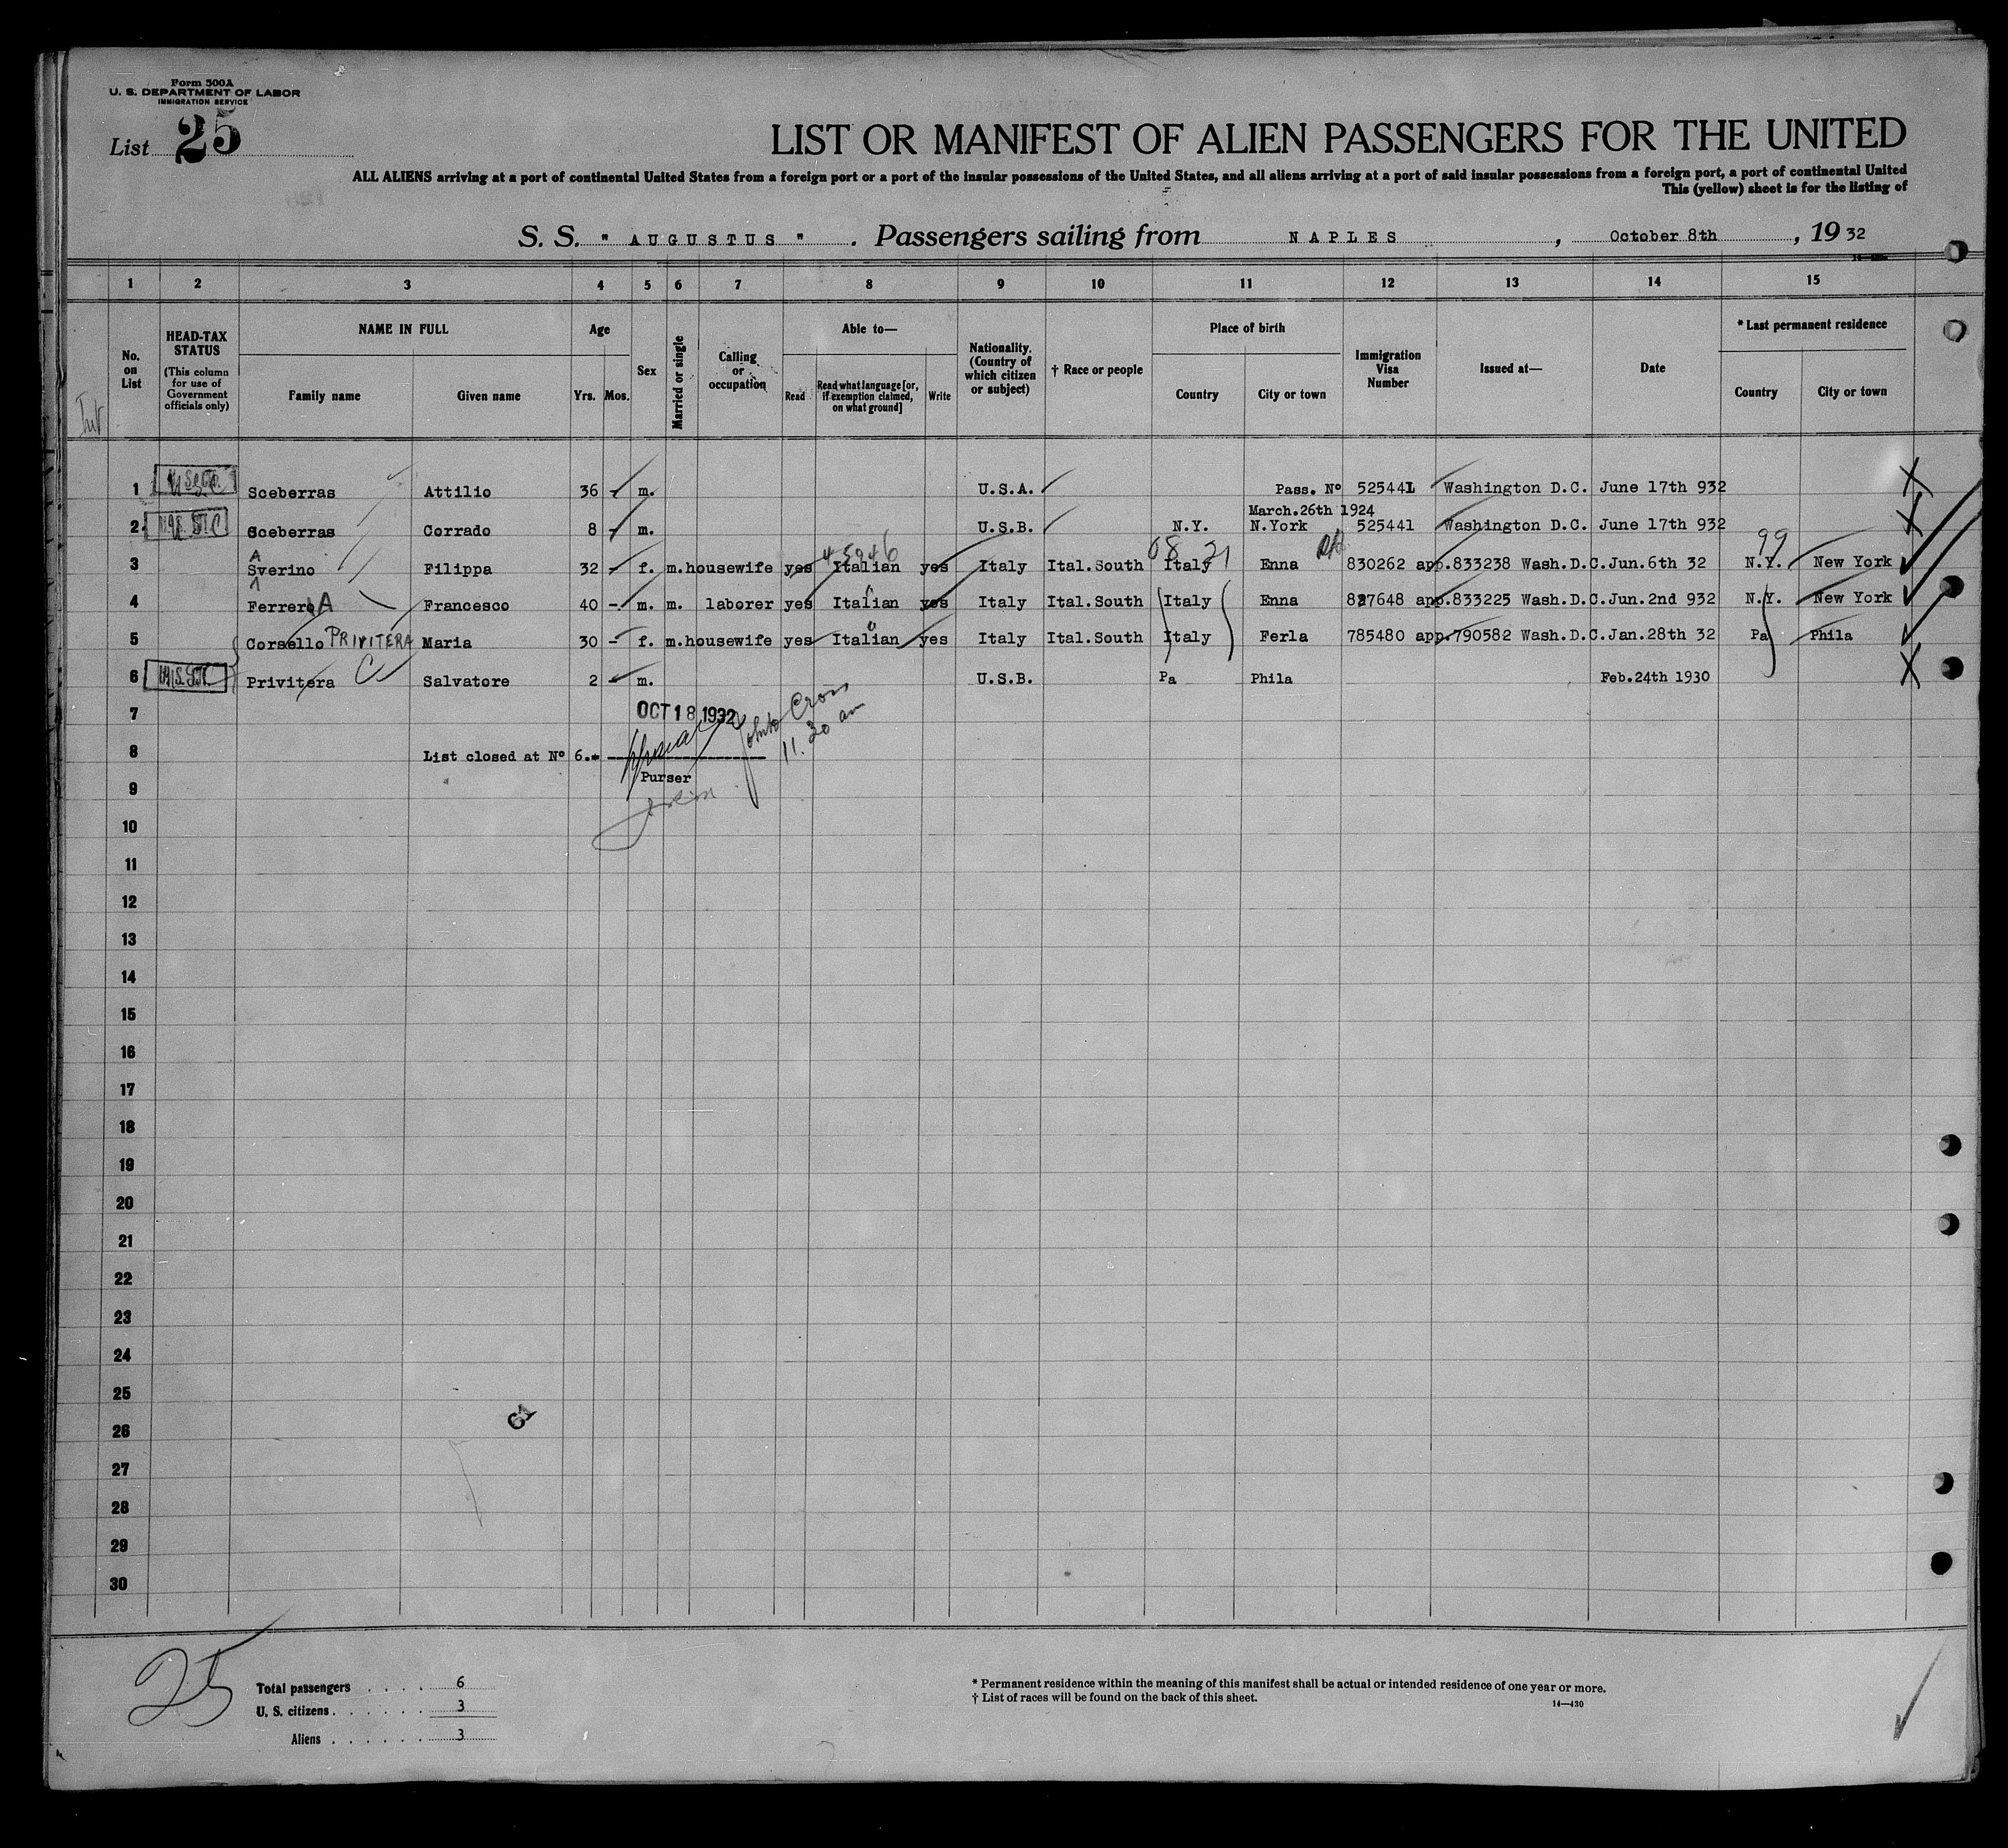 Form 500A
U. S. DEPARTMENT OF LABOR
IMMIGRATION SERVICE
List 25
LIST OR MANIFEST OF ALIEN PASSENGERS FOR THE UNITED
ALL ALIENS arriving at a port of continental United States from a foreign port or a port of the insular possessions of the United States, and all aliens arriving at a port of said insular possessions from a foreign port, a port of continental United
This (yellow) sheet is for the listing of
S. S. " AUGUSTUS " . Passengers sailing from NAPLES , October 8th , 19 32
1 2 3 4 5 6 7 8 9 10 11 12 13 14 15
No. on List
HEAD-TAX STATUS
(This column for use of Government officials only)
NAME IN FULL
Family name Given name
Age
Yrs. Mos.
Sex
Married or single
Calling or occupation
Able to—
Read Read what language [or, if exemption claimed, on what ground] Write
Nationality. (Country of which citizen or subject)
† Race or people
Place of birth
Country City or town
Immigration Visa Number
Issued at—
Date
* Last permanent residence
Country City or town
1 Sceberras Attilio 36 - m. U.S.A. Pass. Nº 525441 Washington D.C. June 17th 932
March.26th 1924
2 Sceberras Corrado 8 - m. U.S.B. N.Y. N.York 525441 Washington D.C. June 17th 932
A 45946 08 21 99
3 Sverino Filippa 32 - f. m. housewife yes Italian yes Italy Ital.South Italy Enna 830262 app.833238 Wash.D.C. Jun.6th 32 N.Y. New York
4 Ferrero A Francesco 40 - m. m. laborer yes Italian yes Italy Ital.South Italy Enna 827648 app.833225 Wash.D.C. Jun.2nd 932 N.Y. New York
5 Corsello PRIVITERA Maria 30 - f. m. housewife yes Italian yes Italy Ital.South Italy Ferla 785480 app.790582 Wash.D.C. Jan.28th 32 Pa Phila
6 Privitera C Salvatore 2 - m. U.S.B. Pa Phila Feb.24th 1930
7 OCT 18 1932
8 List closed at Nº 6.-
11.30 am
Purser
9
10
11
12
13
14
15
16
17
18
19
20
21
22
23
24
25
26
27
28
29
30
25
Total passengers . . . . 6
U. S. citizens . . . . . . 3
Aliens . . . . . . 3
* Permanent residence within the meaning of this manifest shall be actual or intended residence of one year or more.
† List of races will be found on the back of this sheet.
14—430